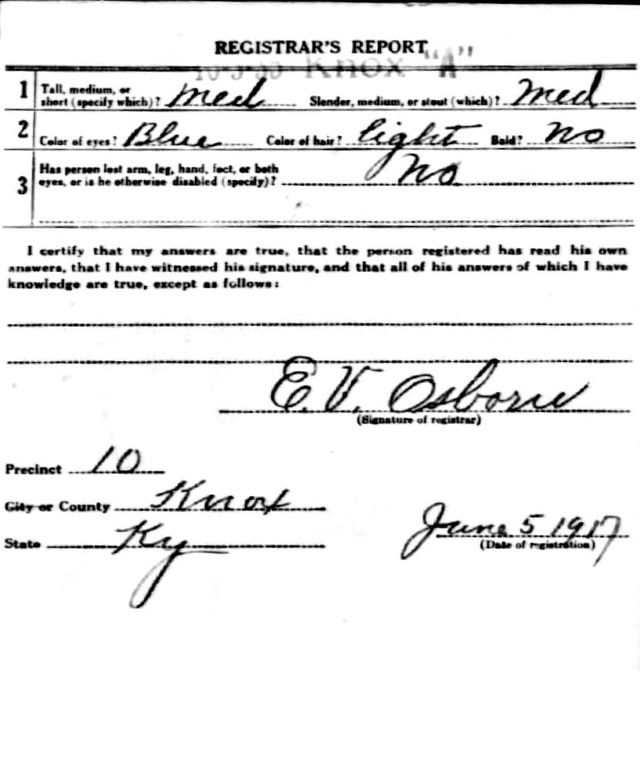 REGISTRAR'S REPORT
Knox "A"
1 Tall, medium, or short (specify which)? Med Slender, medium, or stout (which)? Med
2 Color of eyes? Blue Color of hair? light Bald? No
3 Has person lost arm, leg, hand, foot, or both
eyes, or is he otherwise disabled (specify)? No
I certify that my answers are true, that the person registered has read his own
answers, that I have witnessed his signature, and that all of his answers of which I have
knowledge are true, except as follows:
E. V. Osborne
(Signature of registrar)
Precinct 10
City or County Knox
State Ky
June 5 1917
(Date of registration)